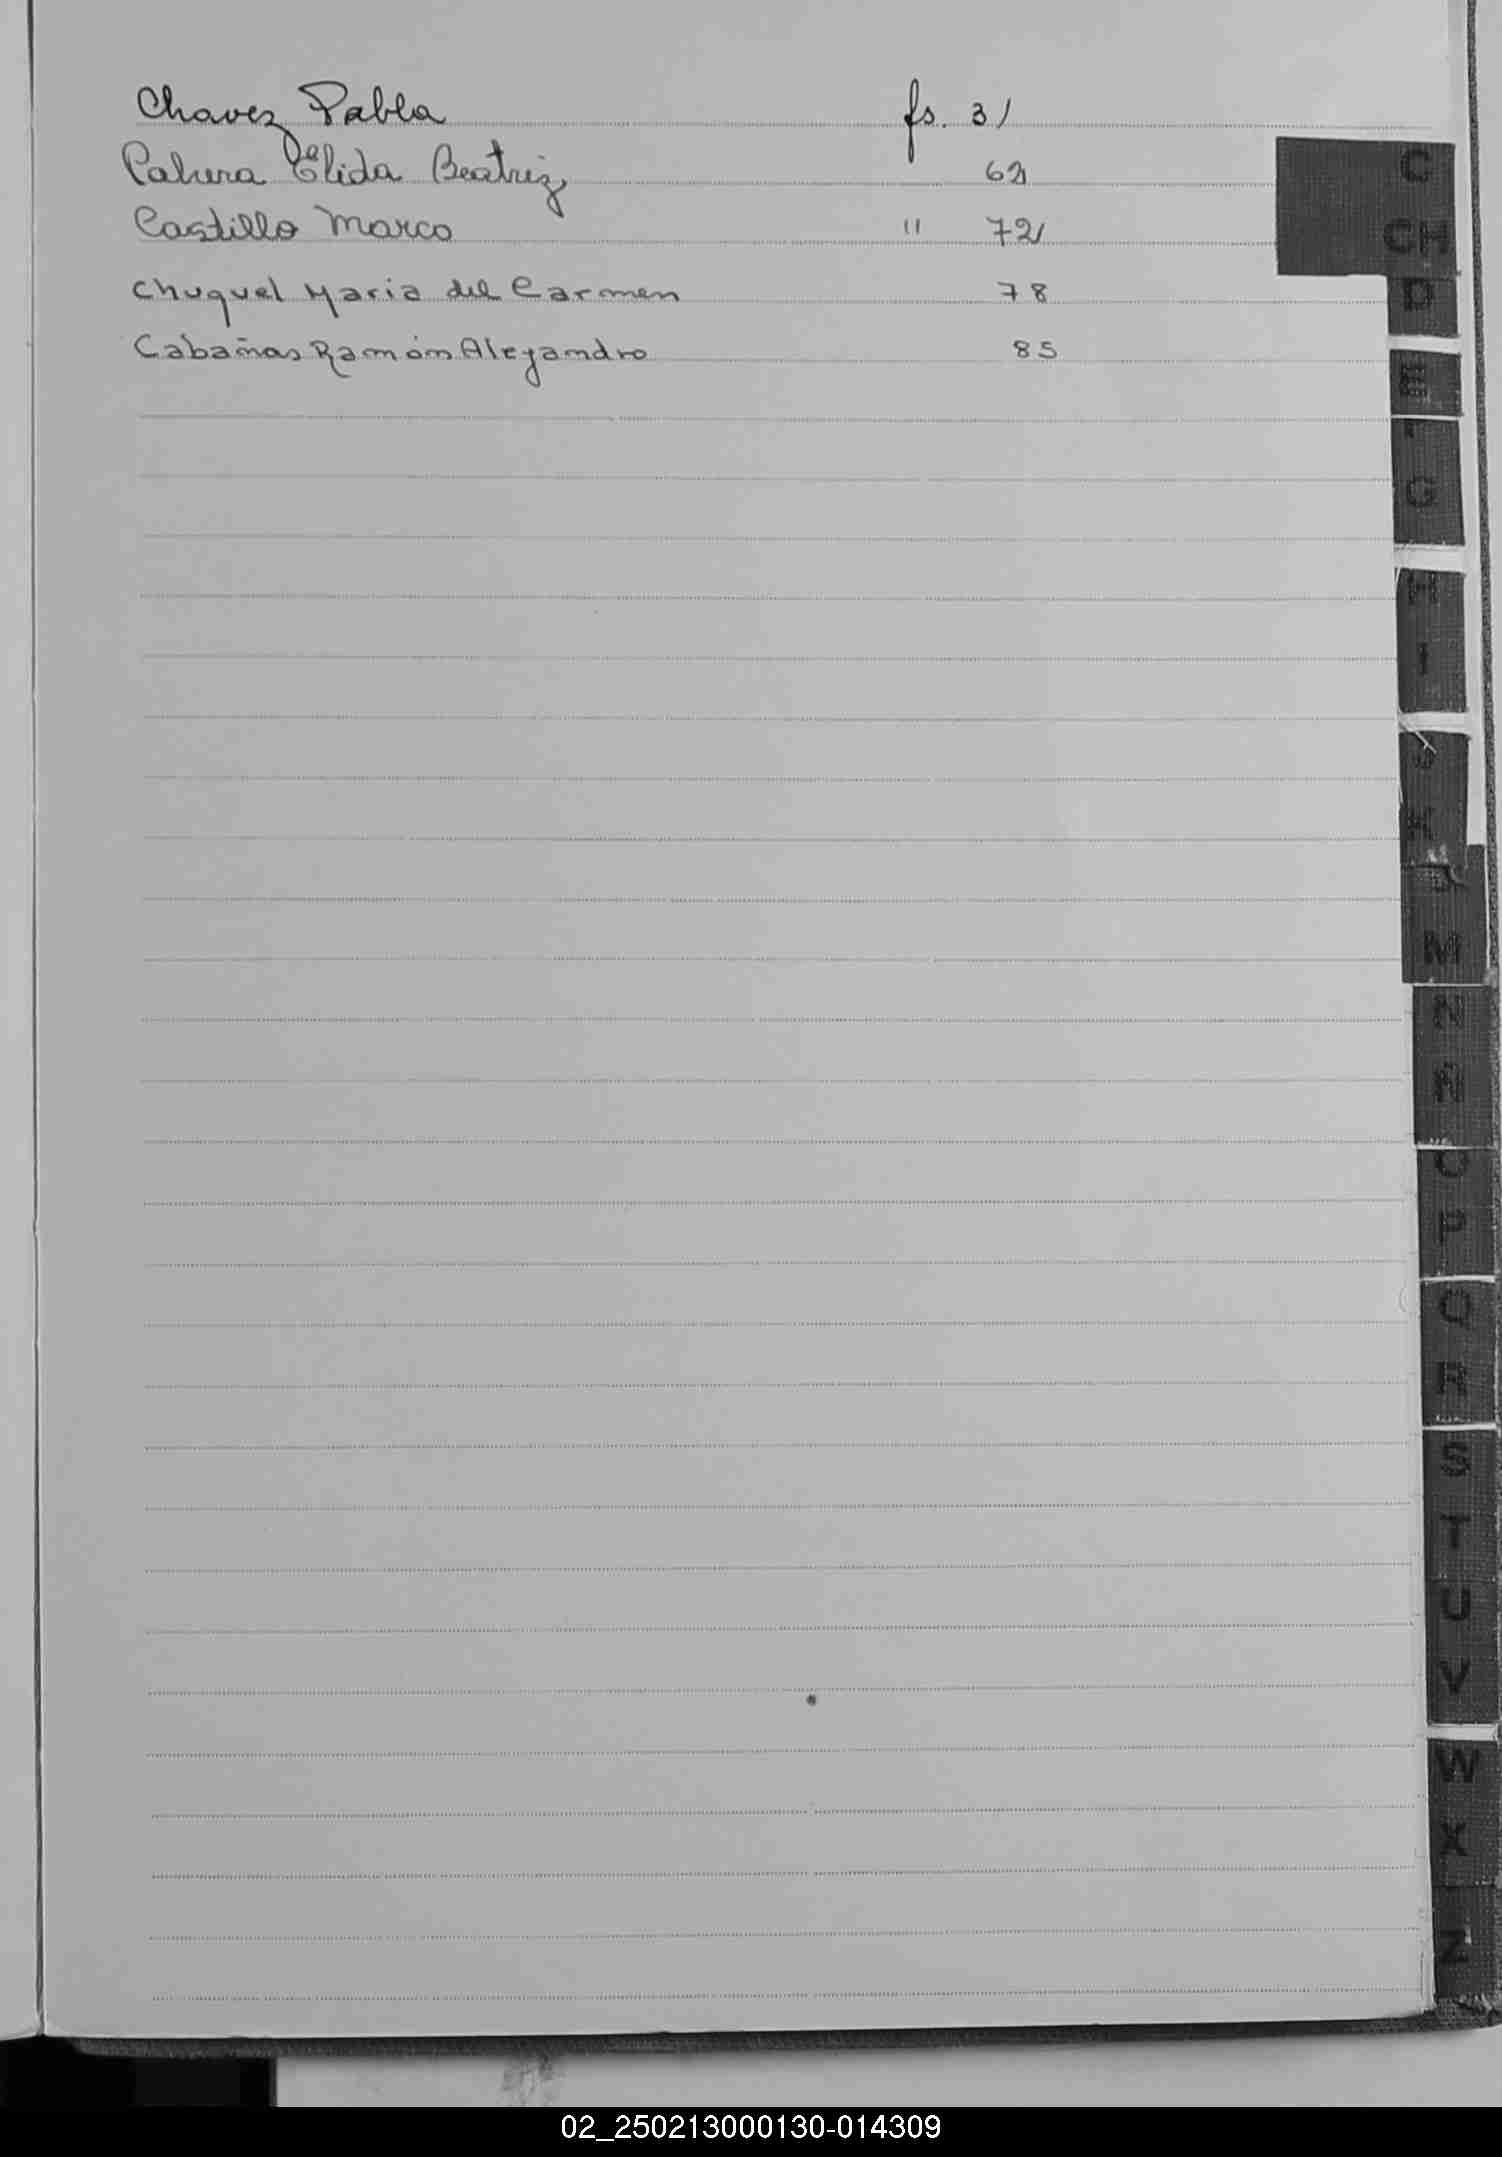 Chavez Pabla fs. 31
Cahura de Elida Beatriz 62
Castillo Marco " 72
Chuquel Maria del Carmen 78
Cabañas Ramón Alejandro 85
C
CH
D
E
F
G
H
I
J
K
L
M
N
Ñ
O
P
Q
R
S
T
U
V
W
X
Z
02_250213000130-014309